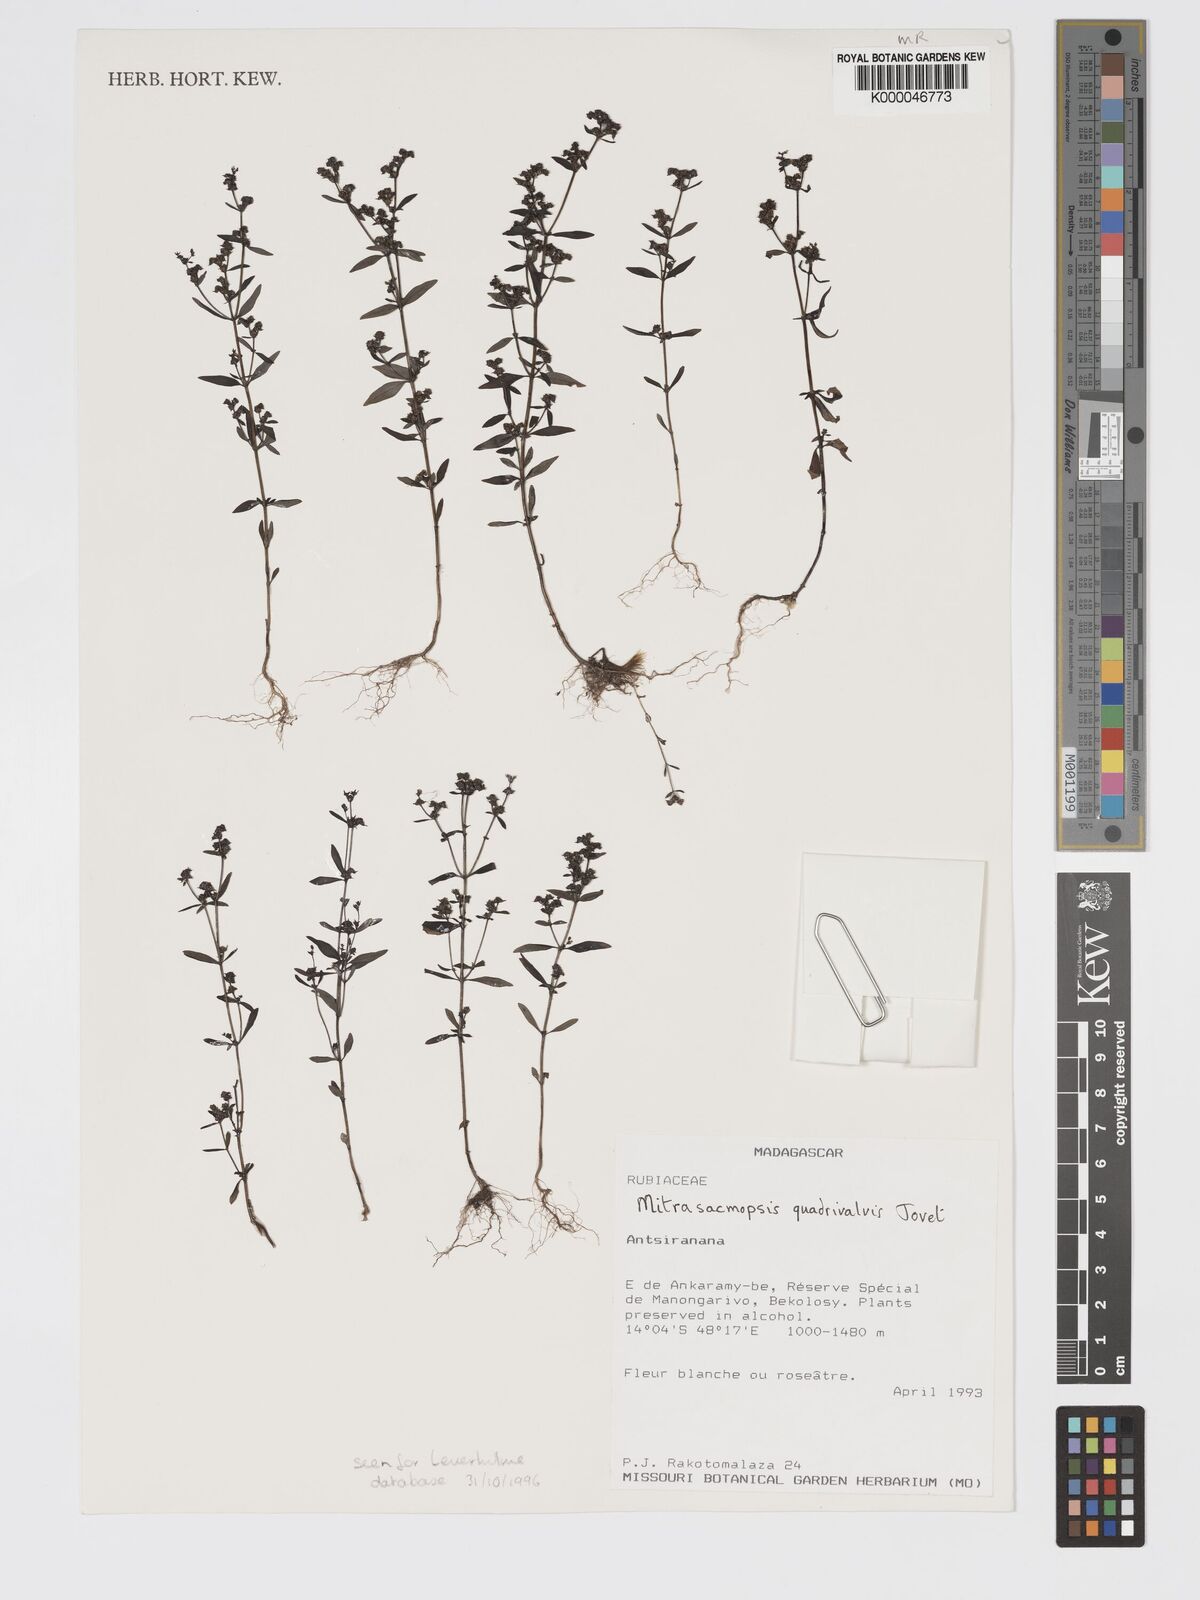 mR
ROYAL BOTANIC GARDENS KEW
K000046773
HERB. HORT. KEW.
MADAGASCAR
RUBIACEAE
Mitrasacmopsis quadrivalvis Jovet
Antsiranana
E de Ankaramy-be, Réserve Spécial
de Manongarivo, Bekolosy. Plants
preserved in alcohol.
14°04'S 48°17'E 1000-1480 m
Fleur blanche ou roseâtre.
April 1993
P.J. Rakotomalaza 24
MISSOURI BOTANICAL GARDEN HERBARIUM (MO)
seen for Leverhulme
database 31/10/1996
inches
Density
Don Williams
M001199
centimeters
Royal Botanic Gardens
Kew
0 1 2 3 4 5 6 7 8 9 10
cm
copyright reserved